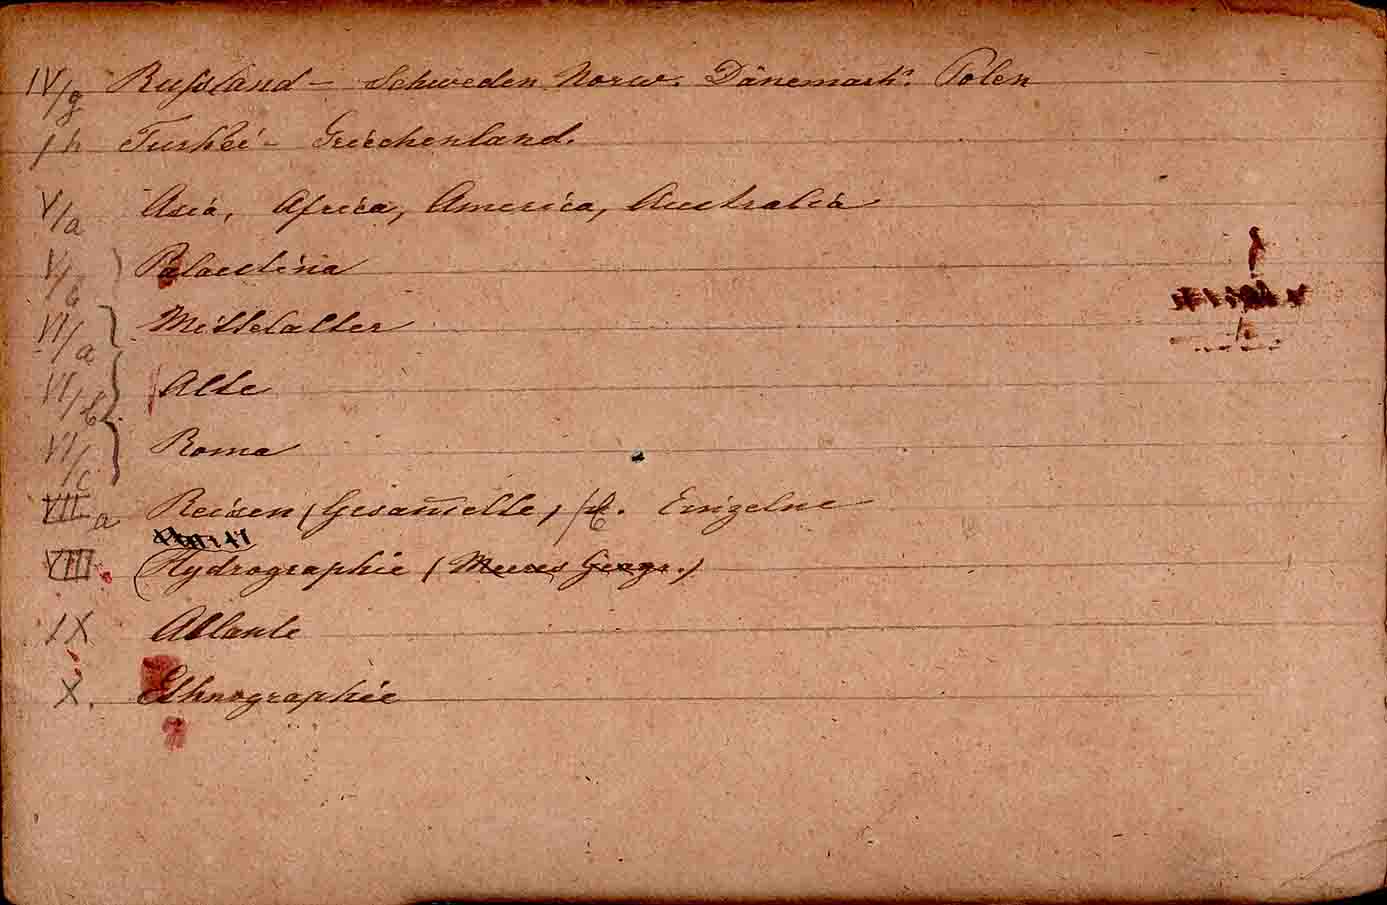 IV/g Russland – Schweden Norw. Dänemark. Polen
/h Turkei – Griechenland.
V/a Asia, Africa, America, Australia
V/b Palaestina
VI/a Mittelalter
VI/b Alte
VI/c Roma
VII a Reisen (Gesam̅elte, /b. Einzelne
VIII. Hydrographie (Meeres Geogr.)
IX Atlante
X. Ethnographie